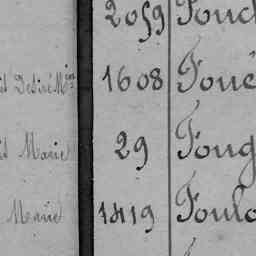 2059 Fouc
Désiré M 1608 Foué
Marie 29 Foug
Marie 1419 Foulo